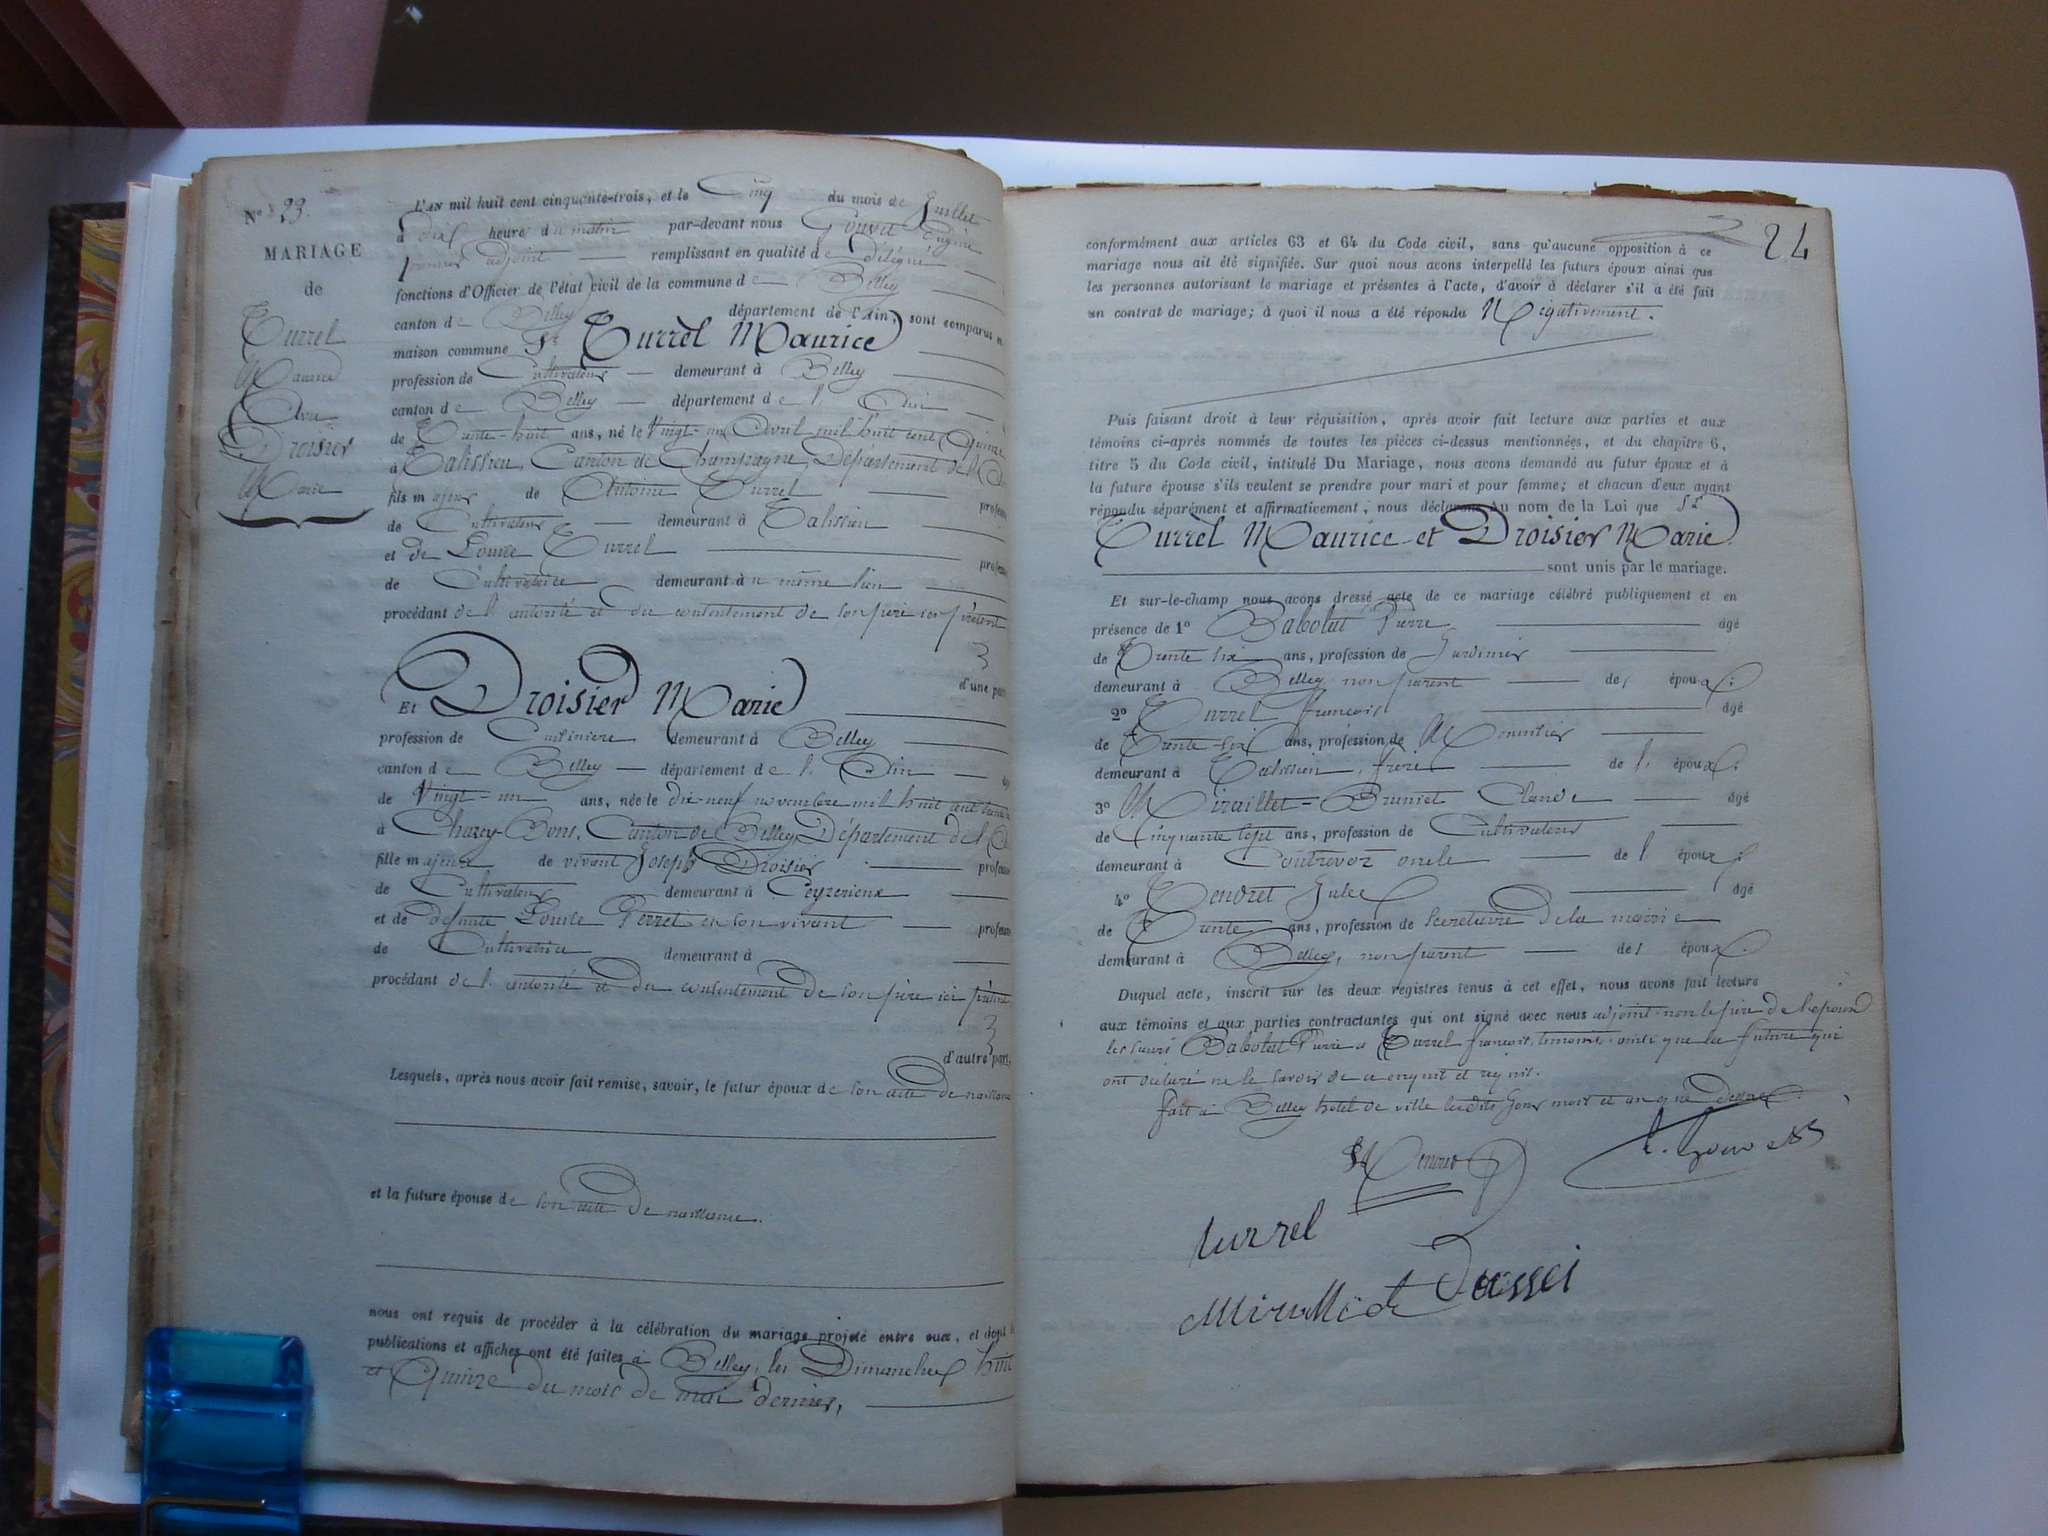 N° 23.
MARIAGE
de
Turrel
Maurice
Avec
Droisier
Marie
L'AN mil huit cent cinquante-trois, et le Cinq du mois de Juillet
à dix heures du matin par-devant nous Gouvet Eugène
premier adjoint remplissant en qualité de délégué
fonctions d'Officier de l'état civil de la commune de Belley
canton de Belley département de l'Ain, sont comparus en
maison commune Sr Turrel Maurice
profession de Cultivateur demeurant à Belley
canton de Belley département de l'Ain
de Trente-huit ans, né le Vingt-un Avril mil huit cent Quinze
à Talissieu, Canton de Champagne, Département de l'A
fils majeur de Antoine Turrel profess
de Cultivateur demeurant à Talissieu
et de Louise Turrel profess
de Cultivatrice demeurant à u même lieu
procédant de l'autorité et du contentement de son père ici présent
d'une par
Et Droisier Marie
profession de Cuisinière demeurant à Belley
canton de Belley département de l'Ain
de Vingt-un ans, née le dix-neuf novembre mil huit cent
à Chazey-Bons, Canton de Belley, Département de l'A
fille majeure de vivant Joseph Droisier profess
de Cultivateur demeurant à Ceyzerieux
et de défunte Louise Perret en son vivant profess
de Cultivatrice demeurant à
procédant de l'autorité et du contentement de son père ici présent
d'autre part.
Lesquels, après nous avoir fait remise, savoir, le futur époux de son acte de naissance
et la future épouse de son acte de naissance.
nous ont requis de procéder à la célébration du mariage projeté entre eux, et dont l
publications et affiches ont été faites à Belley, les Dimanches huit
et Quinze du mois de mai dernier,
24
conformément aux articles 63 et 64 du Code civil, sans qu'aucune opposition à ce
mariage nous ait été signifiée. Sur quoi nous avons interpellé les futurs époux ainsi que
les personnes autorisant le mariage et présentes à l'acte, d'avoir à déclarer s'il a été fait
un contrat de mariage; à quoi il nous a été répondu Négativement.
Puis faisant droit à leur réquisition, après avoir fait lecture aux parties et aux
témoins ci-après nommés de toutes les pièces ci-dessus mentionnées, et du chapitre 6,
titre 5 du Code civil, intitulé Du Mariage, nous avons demandé au futur époux et à
la future épouse s'ils veulent se prendre pour mari et pour femme; et chacun d'eux ayant
répondu séparément et affirmativement, nous déclarons Au nom de la Loi que Sr
Turrel Maurice et Droisier Marie
sont unis par le mariage.
Et sur-le-champ nous avons dressé acte de ce mariage célébré publiquement et en
présence de 1° Babolat Pierre âgé
de Trente six ans, profession de Jardinier
demeurant à Belley non parent des époux.
2° Turrel François âgé
de Trente-six ans, profession de Menuisier
demeurant à Talissieu, frère de l'époux.
3° Miraillet-Bruniet Claude âgé
de Cinquante sept ans, profession de Cultivateur
demeurant à Contrevoz oncle de l'époux
4° Tendret Jules âgé
de Trente ans, profession de Secrétaire de la mairie
demeurant à Belley, non parent des époux.
Duquel acte, inscrit sur les deux registres tenus à cet effet, nous avons fait lecture
aux témoins et aux parties contractantes qui ont signé avec nous adjoint non le père de l'époux
les Babolat Pierre et Turrel François, témoins, ainsi que la future qui
ont déclaré ne le savoir de ce enquis et requis.
Fait à Belley hôtel de ville les dits jour mois et an que dessus.
Tendret
E. Gouvet
turrel
Miraillet